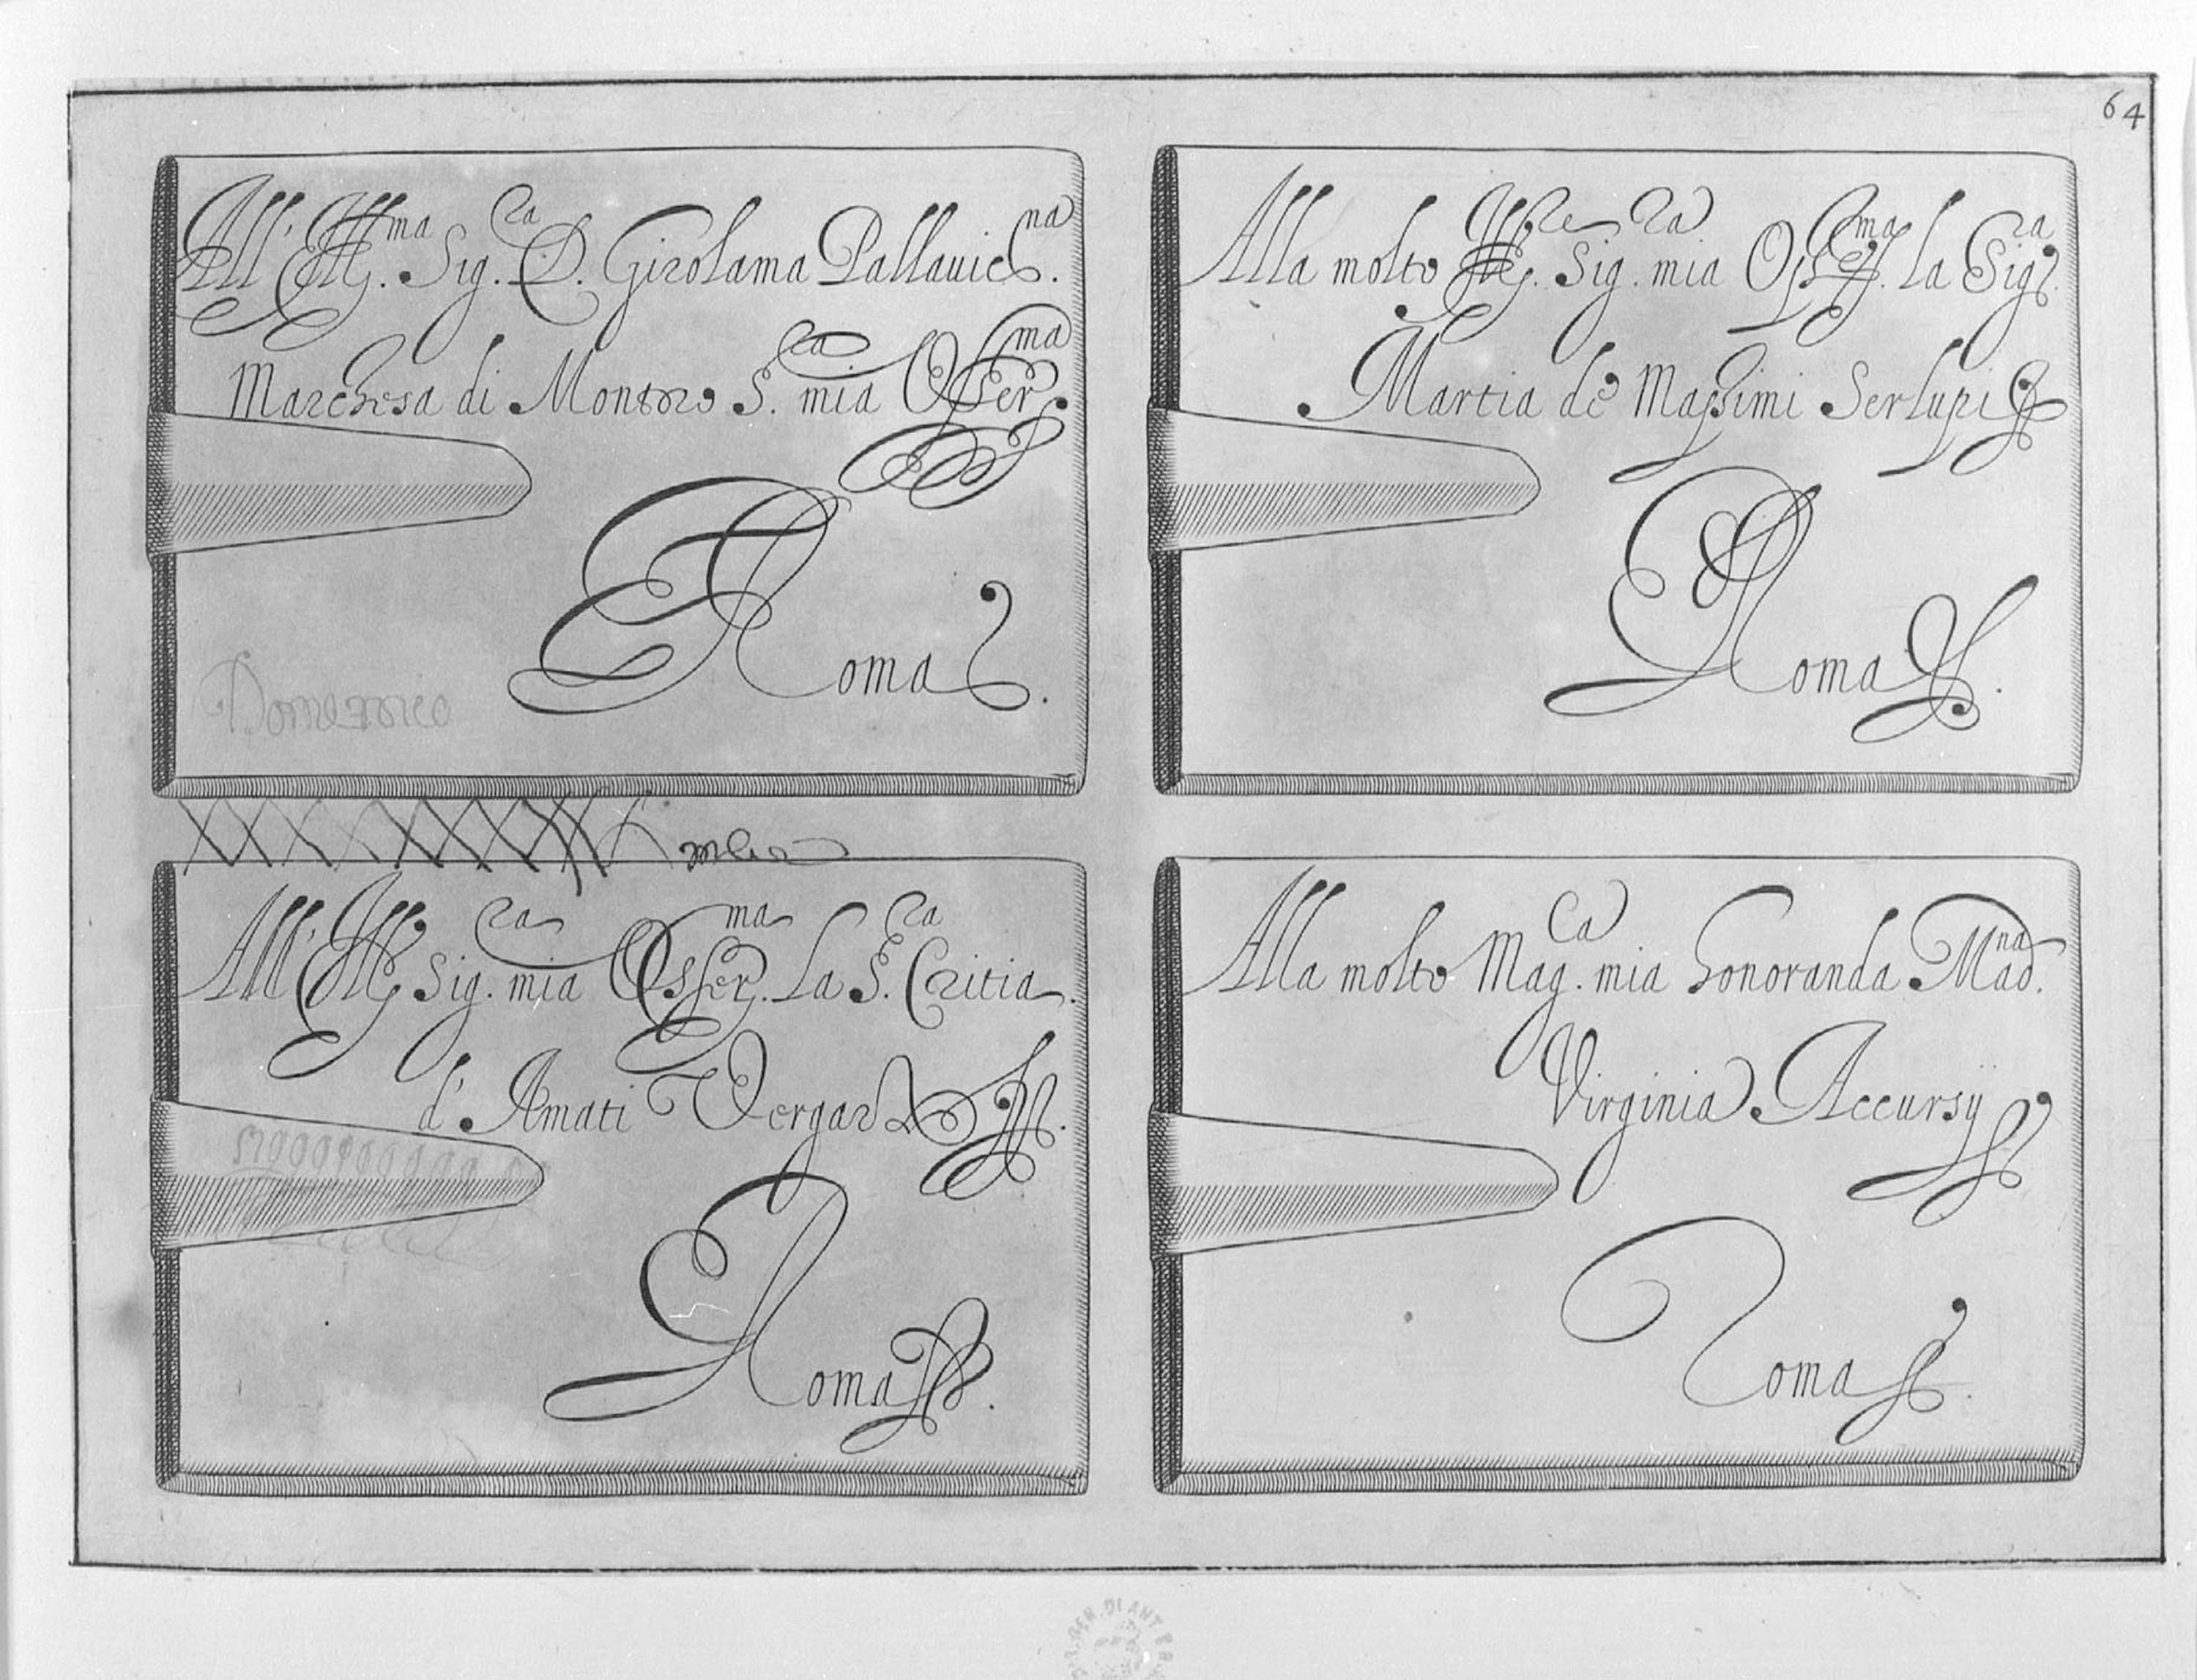 64
All' Ill.ma Sig.ra D. Girolama Pallauic.na
Marchesa di Montoro S.ra mia Osser.ma
Roma.
Domenico
Alla molto Ill.re Sig.ra mia Oss.ma la Sig.ra
Martia de Massimi Serlupi
Roma.
All' Ill. Sig.ra mia Osser.ma La S.ra Critia
d' Amati Vergara.
Roma.
Alla molto Mag.ca mia honoranda Mad.na
Virginia Accursij
Roma.